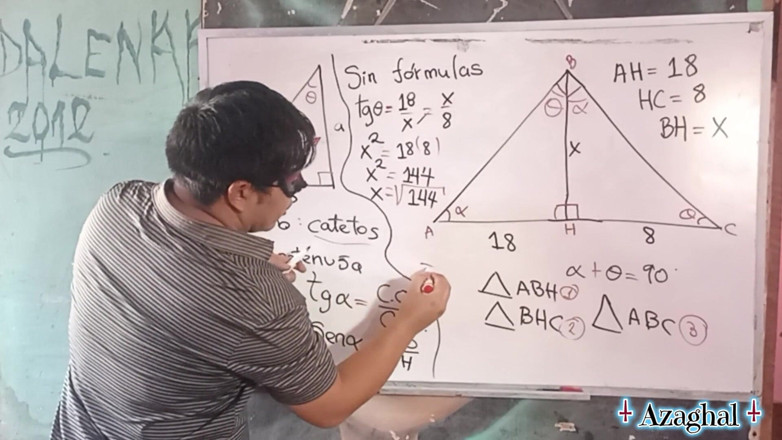 DALENA
2012
θ
a
catetos
tgα=
Sin fórmulas
tgθ = 18/x = x/8
x² = 18(8)
x² = 144
x = √144
B
θ α
x
α
θ
A
H
C
18
8
AH = 18
HC = 8
BH = X
α + θ = 90°
△ABH ①
△BHC ②
△ABC ③
Azaghal